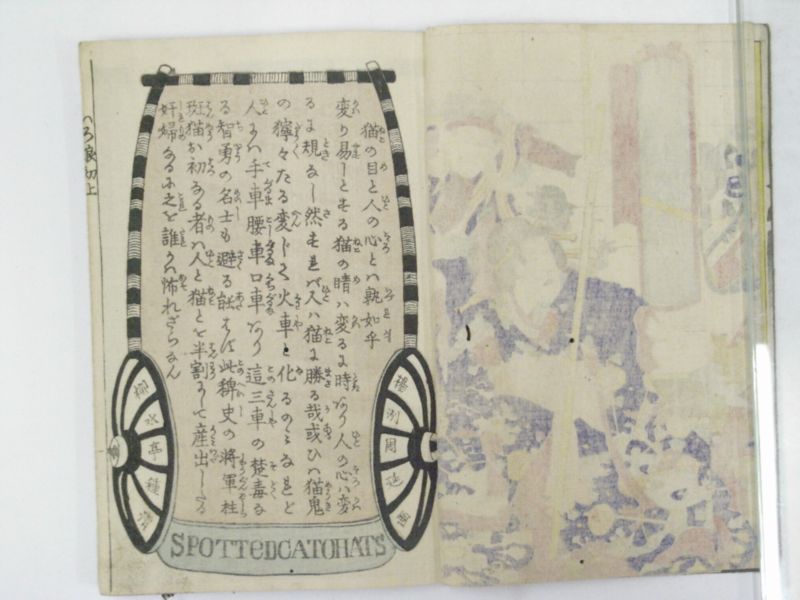 猫の目と人の心とハ孰如乎
変り易しとする猫の睛ハ変るに時あり人の心ハ変
るに規なし然すれバ人ハ猫に勝る哉或ひハ猫鬼
の獰々たる変じて火車と化るのミなれど
人にハ手車腰車口車あり這三車の楚毒な
る智勇の名士も避る能はず此稗史の将軍柱
斑猫お初なる者ハ人と猫とを半割にして産出したる
奸婦なるに之を誰かハ怖れざらなん
柳水亭種清
SPOTTEDCATOHATS